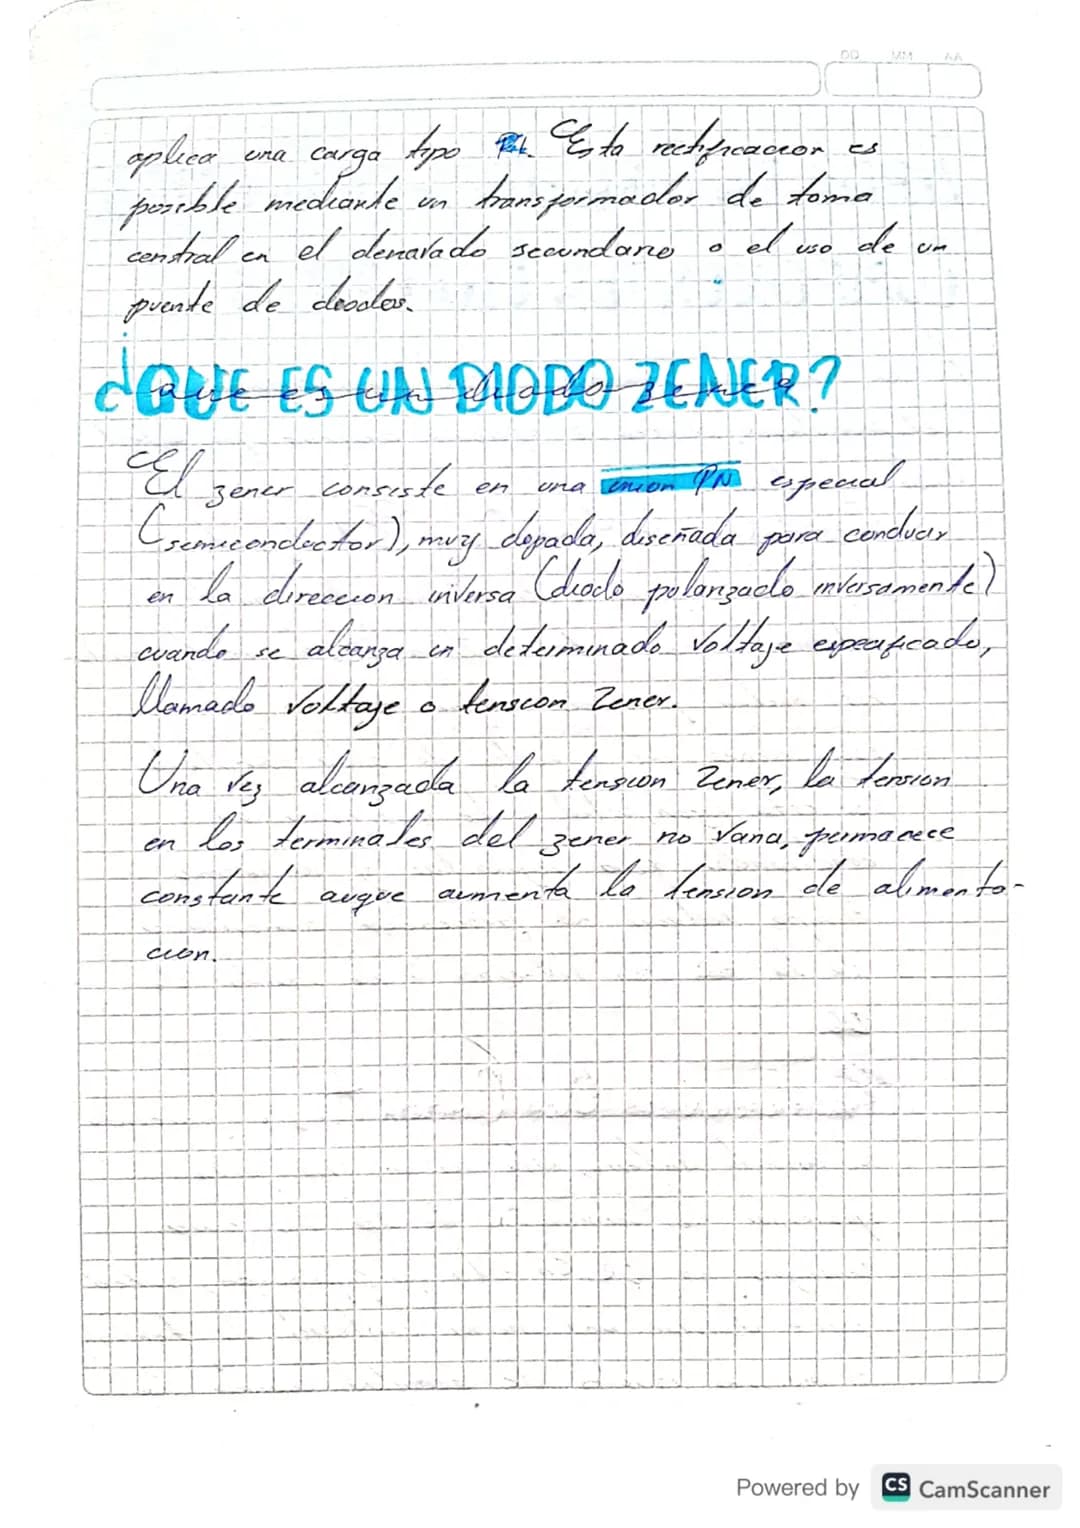 DD MM AA
aplica una carga tipo RL. Esta rectificacion es
posible mediante un transformador de toma
central en el denavado secundario o el uso de un
puente de diodos.
¿QUE ES UN DIODO ZENER?
El zener consiste en una union PN especial
(semiconductor), muy dopada, diseñada para conducir
en la direccion inversa (diodo polarizado inversamente)
cuando se alcanza un determinado voltaje especificado,
llamado Voltaje o tension Zener.
Una vez alcanzada la tension Zener, la tension
en los terminales del zener no varia, permanece
constante auque aumenta la tension de alimenta-
cion.
Powered by CS CamScanner